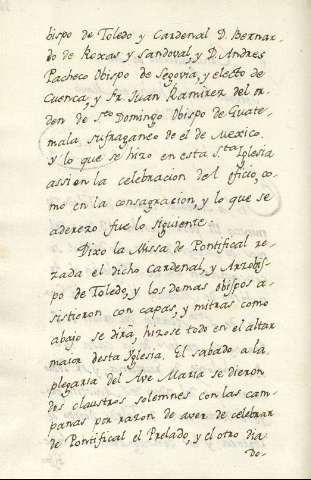 bispo de Toledo y Cardenal D. Bernar-
do de Roxas y Sandoval, y D. Andres
Pacheco Obispo de Segovia, y electo de
Cuenca, y Fr. Juan Ramirez del or-
den de Sto Domingo Obispo de Guate-
mala, sufraganeo de el de Mexico.
y lo que se hizo en esta S.ta Iglesia
assi en la celebracion del oficio, co-
mo en la consagracion, y lo que se
aderezo fue lo siguiente:
Dixo la Missa de Pontifical re-
zada el dicho Cardenal, y Arzobis-
po de Toledo, y los demas obispos a-
sistieron con capas, y mitras como
abajo se dirà, hizose todo en el altar
maior desta Iglesia. El sabado a la
plegaria del Ave Maria se dieron
dos claustros solemnes con las cam-
panas por razon de aver de celebrar
de Pontifical el Prelado, y el otro dia
do-